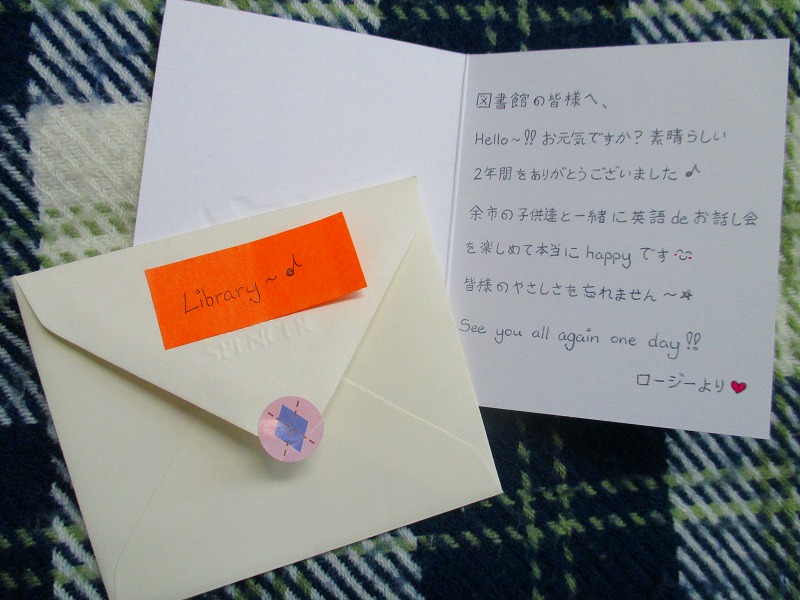 図書館の皆様へ、
Hello~!! お元気ですか？素晴らしい
2年間をありがとうございました♪
余市の子供達と一緒に英語 de お話し会
を楽しめて本当に happy です
皆様のやさしさを忘れません～☆
See you all again one day!!
ロージーより♥
Library~♪
SPENCER